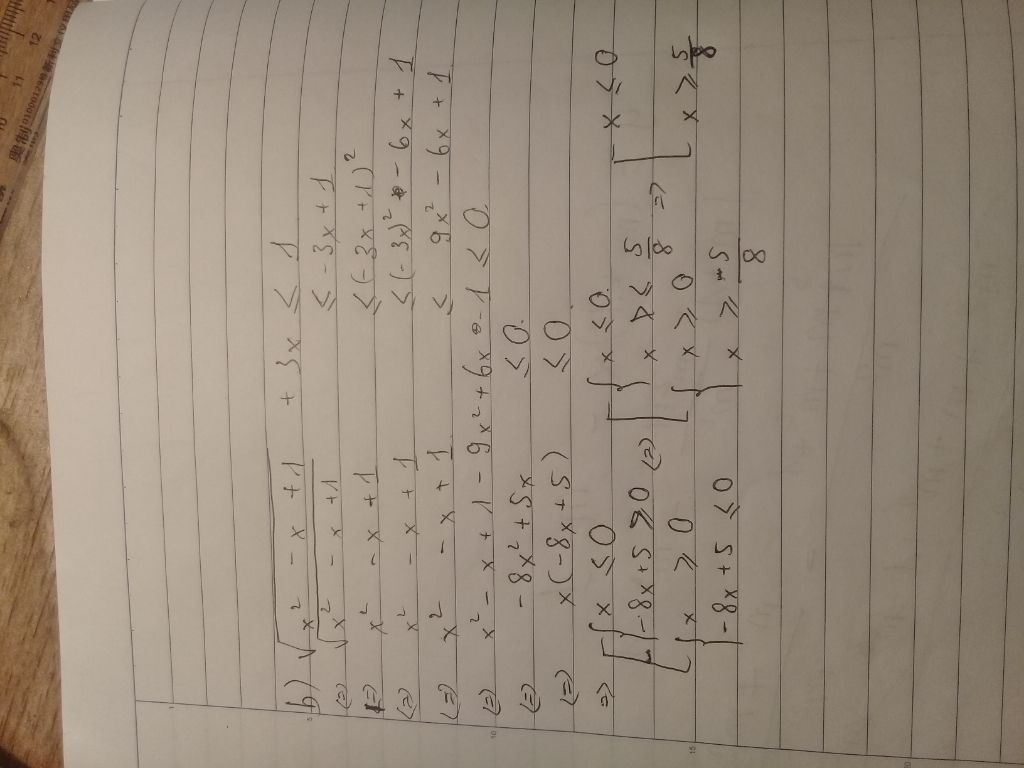 b) √(x² - x + 1) + 3x ≤ 1
(=) √(x² - x + 1) ≤ -3x + 1
(=) x² - x + 1 ≤ (-3x + 1)²
(=) x² - x + 1 ≤ (-3x)² - 6x + 1
(=) x² - x + 1 ≤ 9x² - 6x + 1
(=) x² - x + 1 - 9x² + 6x - 1 ≤ 0
(=) -8x² + 5x ≤ 0.
(=) x(-8x + 5) ≤ 0
=> [ { x ≤ 0 [ { x ≤ 0. [ x ≤ 0
{ -8x + 5 ≥ 0 (=) { x ≤ 5/8 => [ x ≥ 5/8
[ { x ≥ 0 [ { x ≥ 0
{ -8x + 5 ≤ 0 { x ≥ 5/8